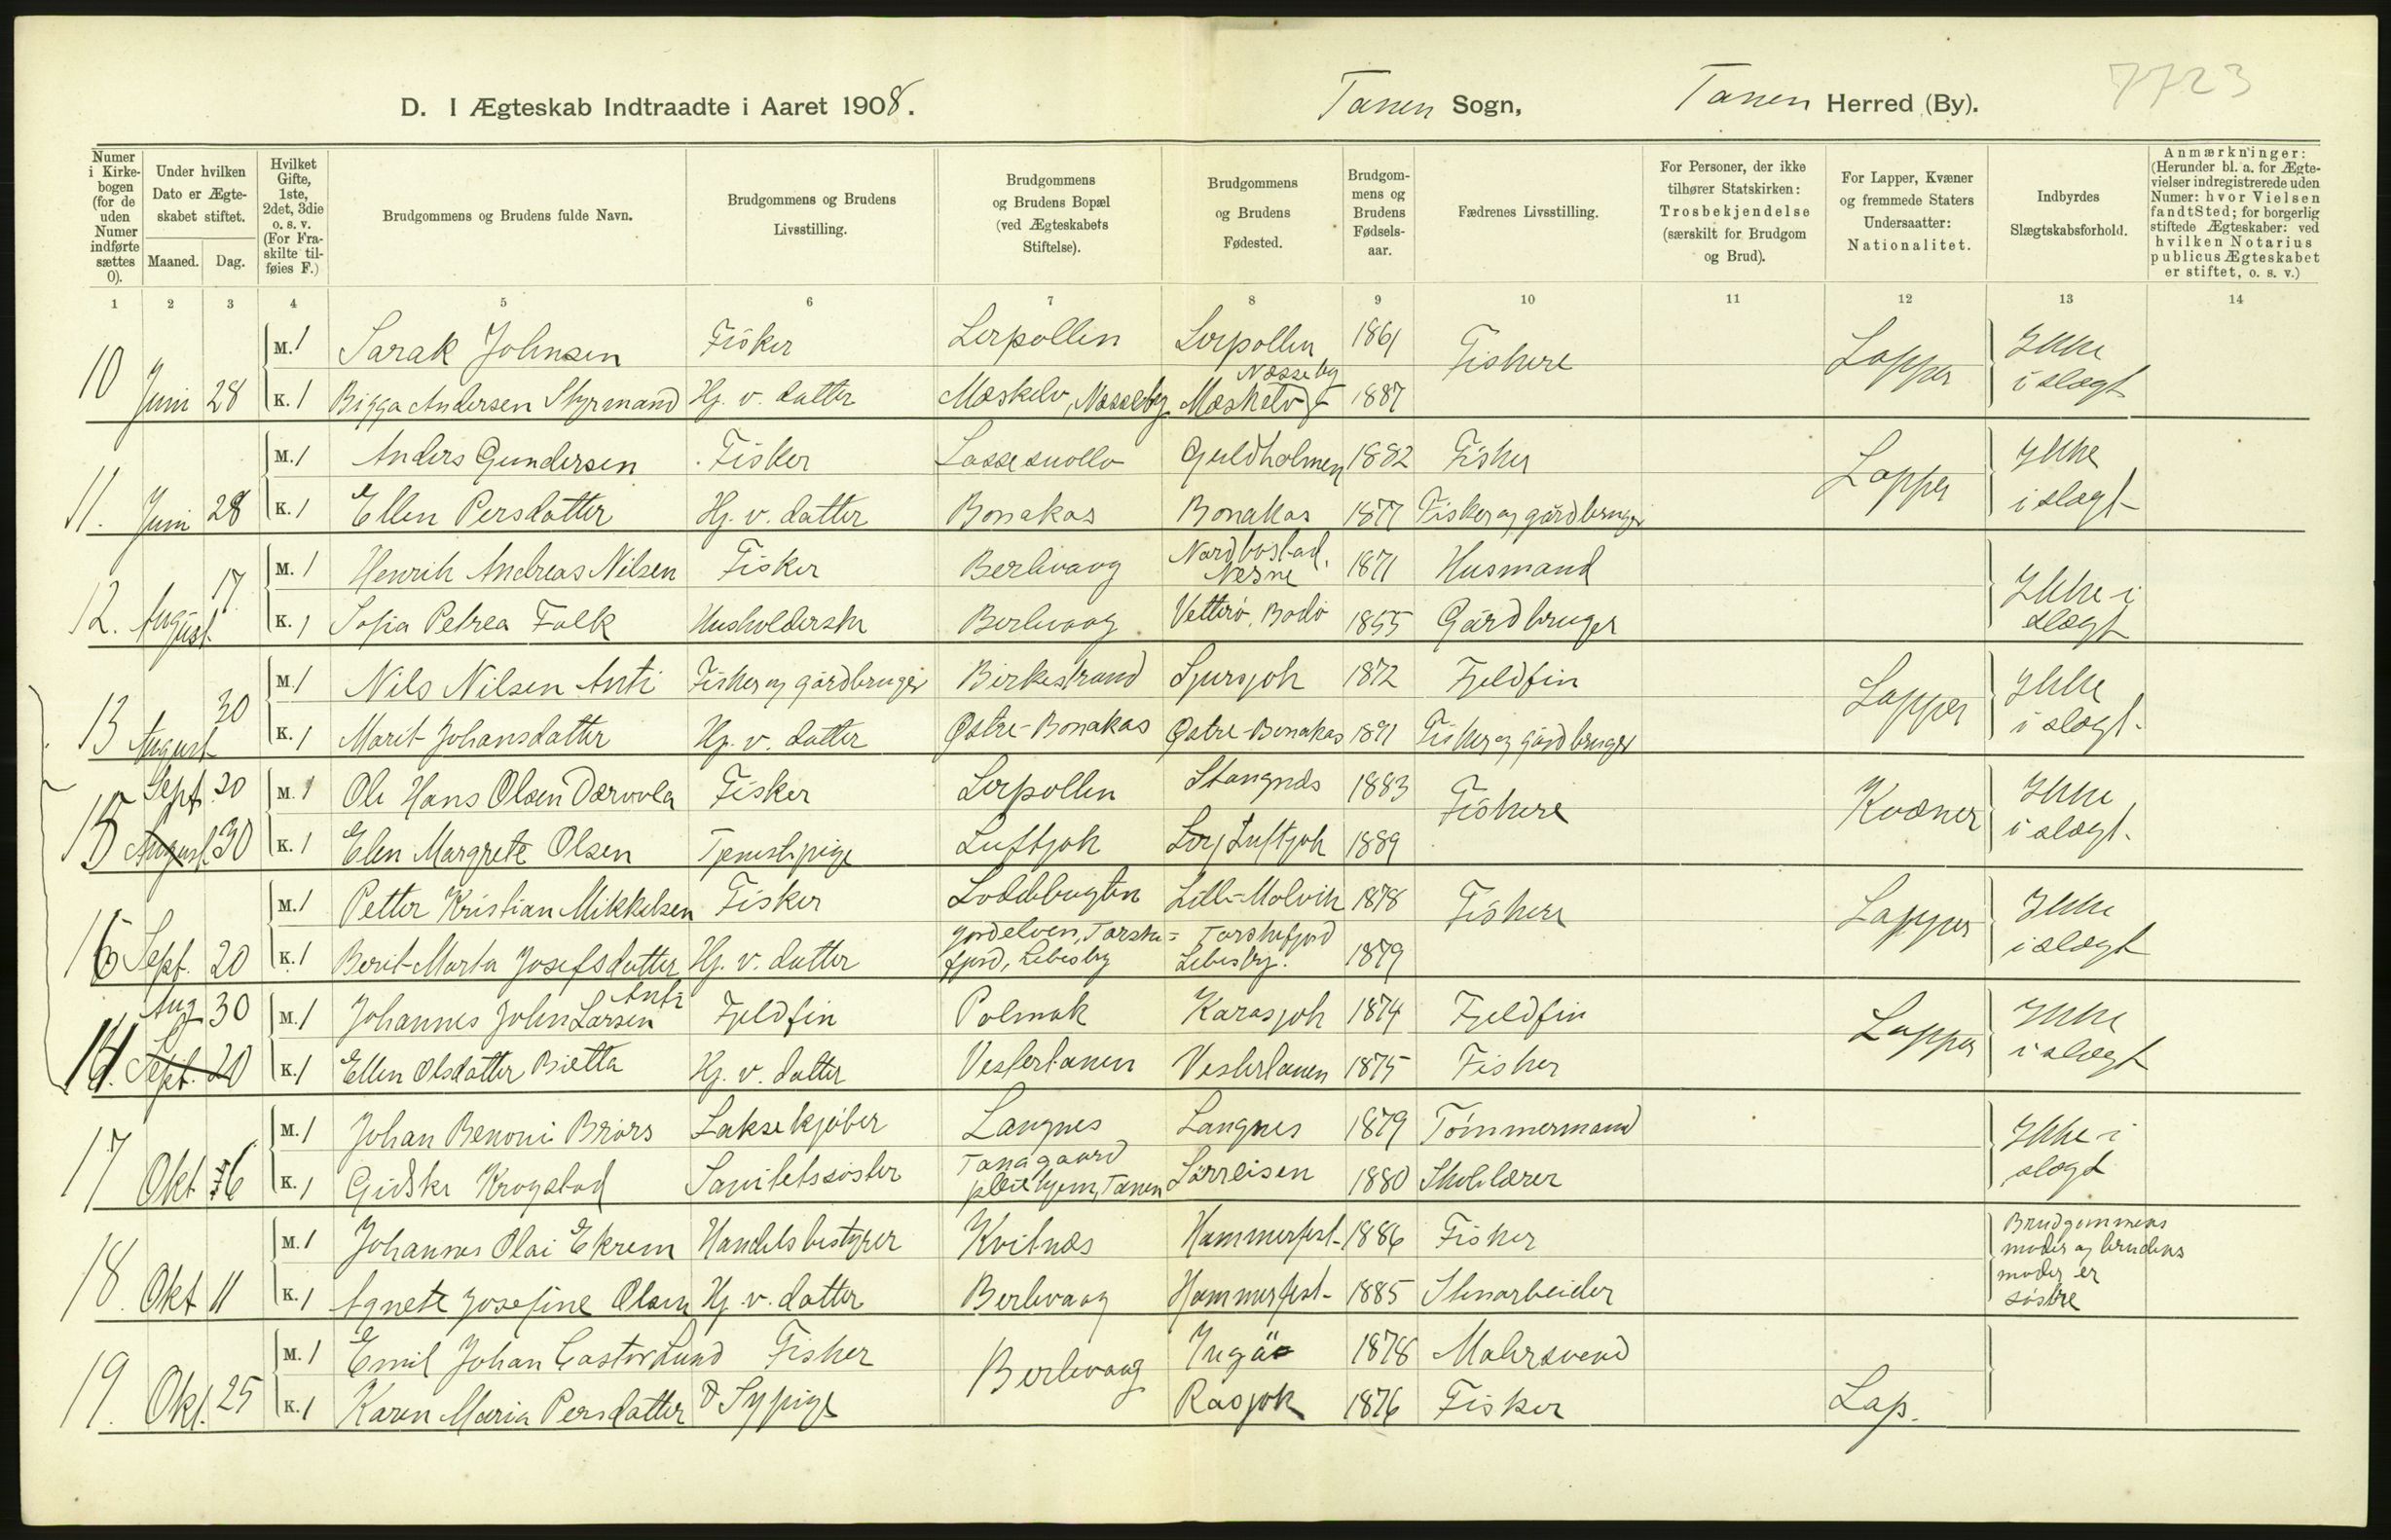 7723
D. I Ægteskab Indtraadte i Aaret 1908. Tanen Sogn, Tanen Herred (By).
Numer i Kirkebogen (for de uden Numer indførte sættes 0).
Under hvilken Dato er Ægteskabet stiftet.
Maaned. Dag.
Hvilket Gifte, 1ste, 2det, 3die o. s. v. (For Fraskilte tilføies F.)
Brudgommens og Brudens fulde Navn.
Brudgommens og Brudens Livsstilling.
Brudgommens og Brudens Bopæl (ved Ægteskabets Stiftelse).
Brudgommens og Brudens Fødested.
Brudgommens og Brudens Fødselsaar.
Fædrenes Livsstilling.
For Personer, der ikke tilhører Statskirken: Trosbekjendelse (særskilt for Brudgom og Brud).
For Lapper, Kvæner og fremmede Staters Undersaatter: Nationalitet.
Indbyrdes Slægtskabsforhold.
Anmærkninger: (Herunder bl. a. for Ægtevielser indregistrerede uden Numer: hvor Vielsen fandt Sted; for borgerlig stiftede Ægteskaber: ved hvilken Notarius publicus Ægteskabet er stiftet, o. s. v.)
1 2 3 4 5 6 7 8 9 10 11 12 13 14
M. 1 Sarak Johnsen Fisker Lerpollen Lerpollen 1861 Fiskere Lapper Ikke
10 Juni 28 K. 1 Bigga Andersen Styrmand Hj. v. datter Mæskelv, Næsseby Mæskelv Næsseby 1887 i slægt
M. 1 Anders Gundersen Fisker Lassesuollo Guldholmen 1882 Fisker Lapper Ikke
11. Juni 28 K. 1 Ellen Persdatter Hj. v. datter Bonakas Bonakas 1877 Fisker og gårdbruger i slægt
M. 1 Henrik Andreas Nilsen Fisker Berlevaag Nordbostad, Nesne 1871 Husmand Ikke i
12. August 17 K. 1 Sofia Petrea Falk Husholderske Berlevaag Vetterö, Bodö 1855 Gårdbruger slægt
M. 1 Nils Nilsen Anti Fisker og gårdbruger Birkestrand 1872 Fjeldfin Lapper Ikke
13 August 30 K. 1 Marit Johansdatter Hj. v. datter Østre-Bonakas Østre-Bonakas 1891 Fisker og gårdbruger i slægt.
Sept. 20 M. 1 Ole Hans Olsen Fisker Lerpollen Stangnæs 1883 Fiskere Kvæner Ikke
15 August 30 K. 1 Elen Margrete Olsen Tjenestepige Luftjok Luftjok 1889 i slægt.
M. 1 Petter Kristian Mikkelsen Fisker Loddebugten Lille-Molvik 1878 Fiskere Lapper Ikke
16 Sept. 20 K. 1 Berit Marta Josefsdatter Hj. v. datter Torskefjord, Lebesby Torskefjord Lebesby. 1879 i slægt
Aug 30 M. 1 Johannes John Larsen Anti Fjeldfin Polmak Karasjok 1874 Fjeldfin Lapper Ikke
14. Sept. 20 K. 1 Ellen Olsdatter Bietta Hj. v. datter Vestertanen Vestertanen 1875 Fisker i slægt
M. 1 Johan Benoni Briors Laksekjøber Langnes Langnes 1879 Tömmermand Ikke i
17 Okt 6 K. 1 Gidske Krogstad Sanitetssöster Tanagaard pleiehjem, Tanen Sörreisen 1880 Skolelærer slægt
M. 1 Johannes Olai Ekrem Handelsbestyrer Kvitnæs Hammerfest 1886 Fisker Brudgommens moder og brudens
18. Okt 11 K. 1 Agnete Josefine Olsen Hj. v. datter Berlevaag Hammerfest 1885 Stenarbeider moder er søstre
M. 1 Emil Johan Castor Lund Fisker Berlevaag Ingö 1878 Malersvend
19. Okt. 25 K. 1 Karen Maria Persdatter Sypige Rasjok 1876 Fisker Lap.